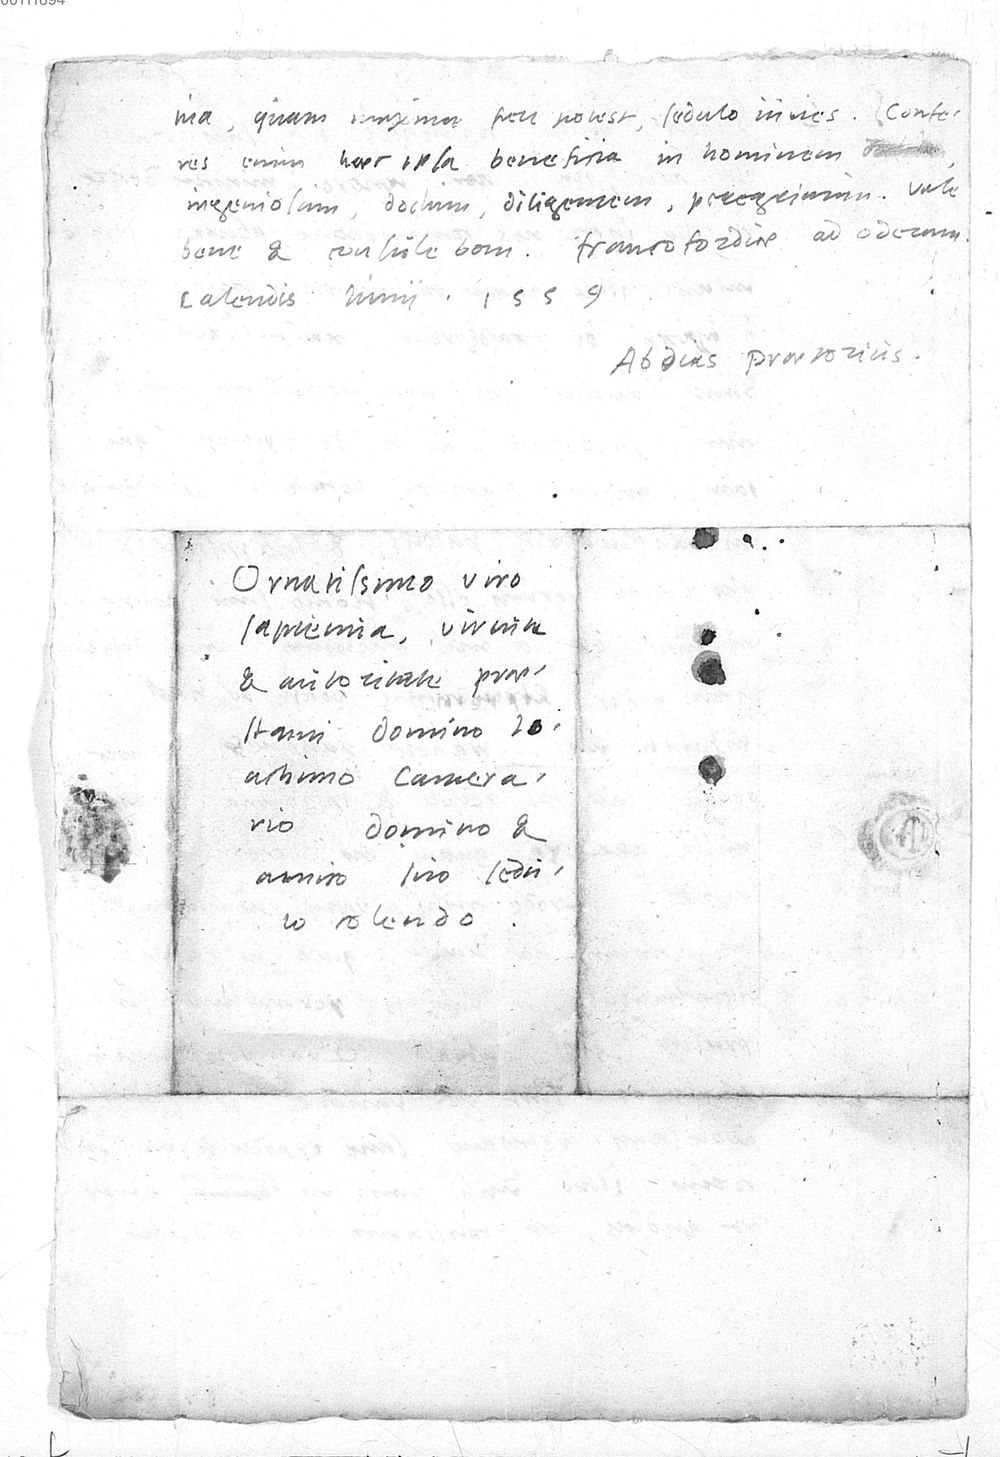 00111894
ma, quam maxima fieri potest, sedulo iuues. Confe-
res enim haec ipsa beneficia in hominem
ingeniosum, doctum, diligentem, peregrinum. Vale
bene & consule boni. Francofordiae ad Oderam.
Calendis Iunij. 1559
Abdias Praetorius.
Ornatissimo viro
sapientia, virtute
& autoritate prae-
stanti domino Io-
achimo Camera-
rio domino &
amico suo sedu-
lo colendo.